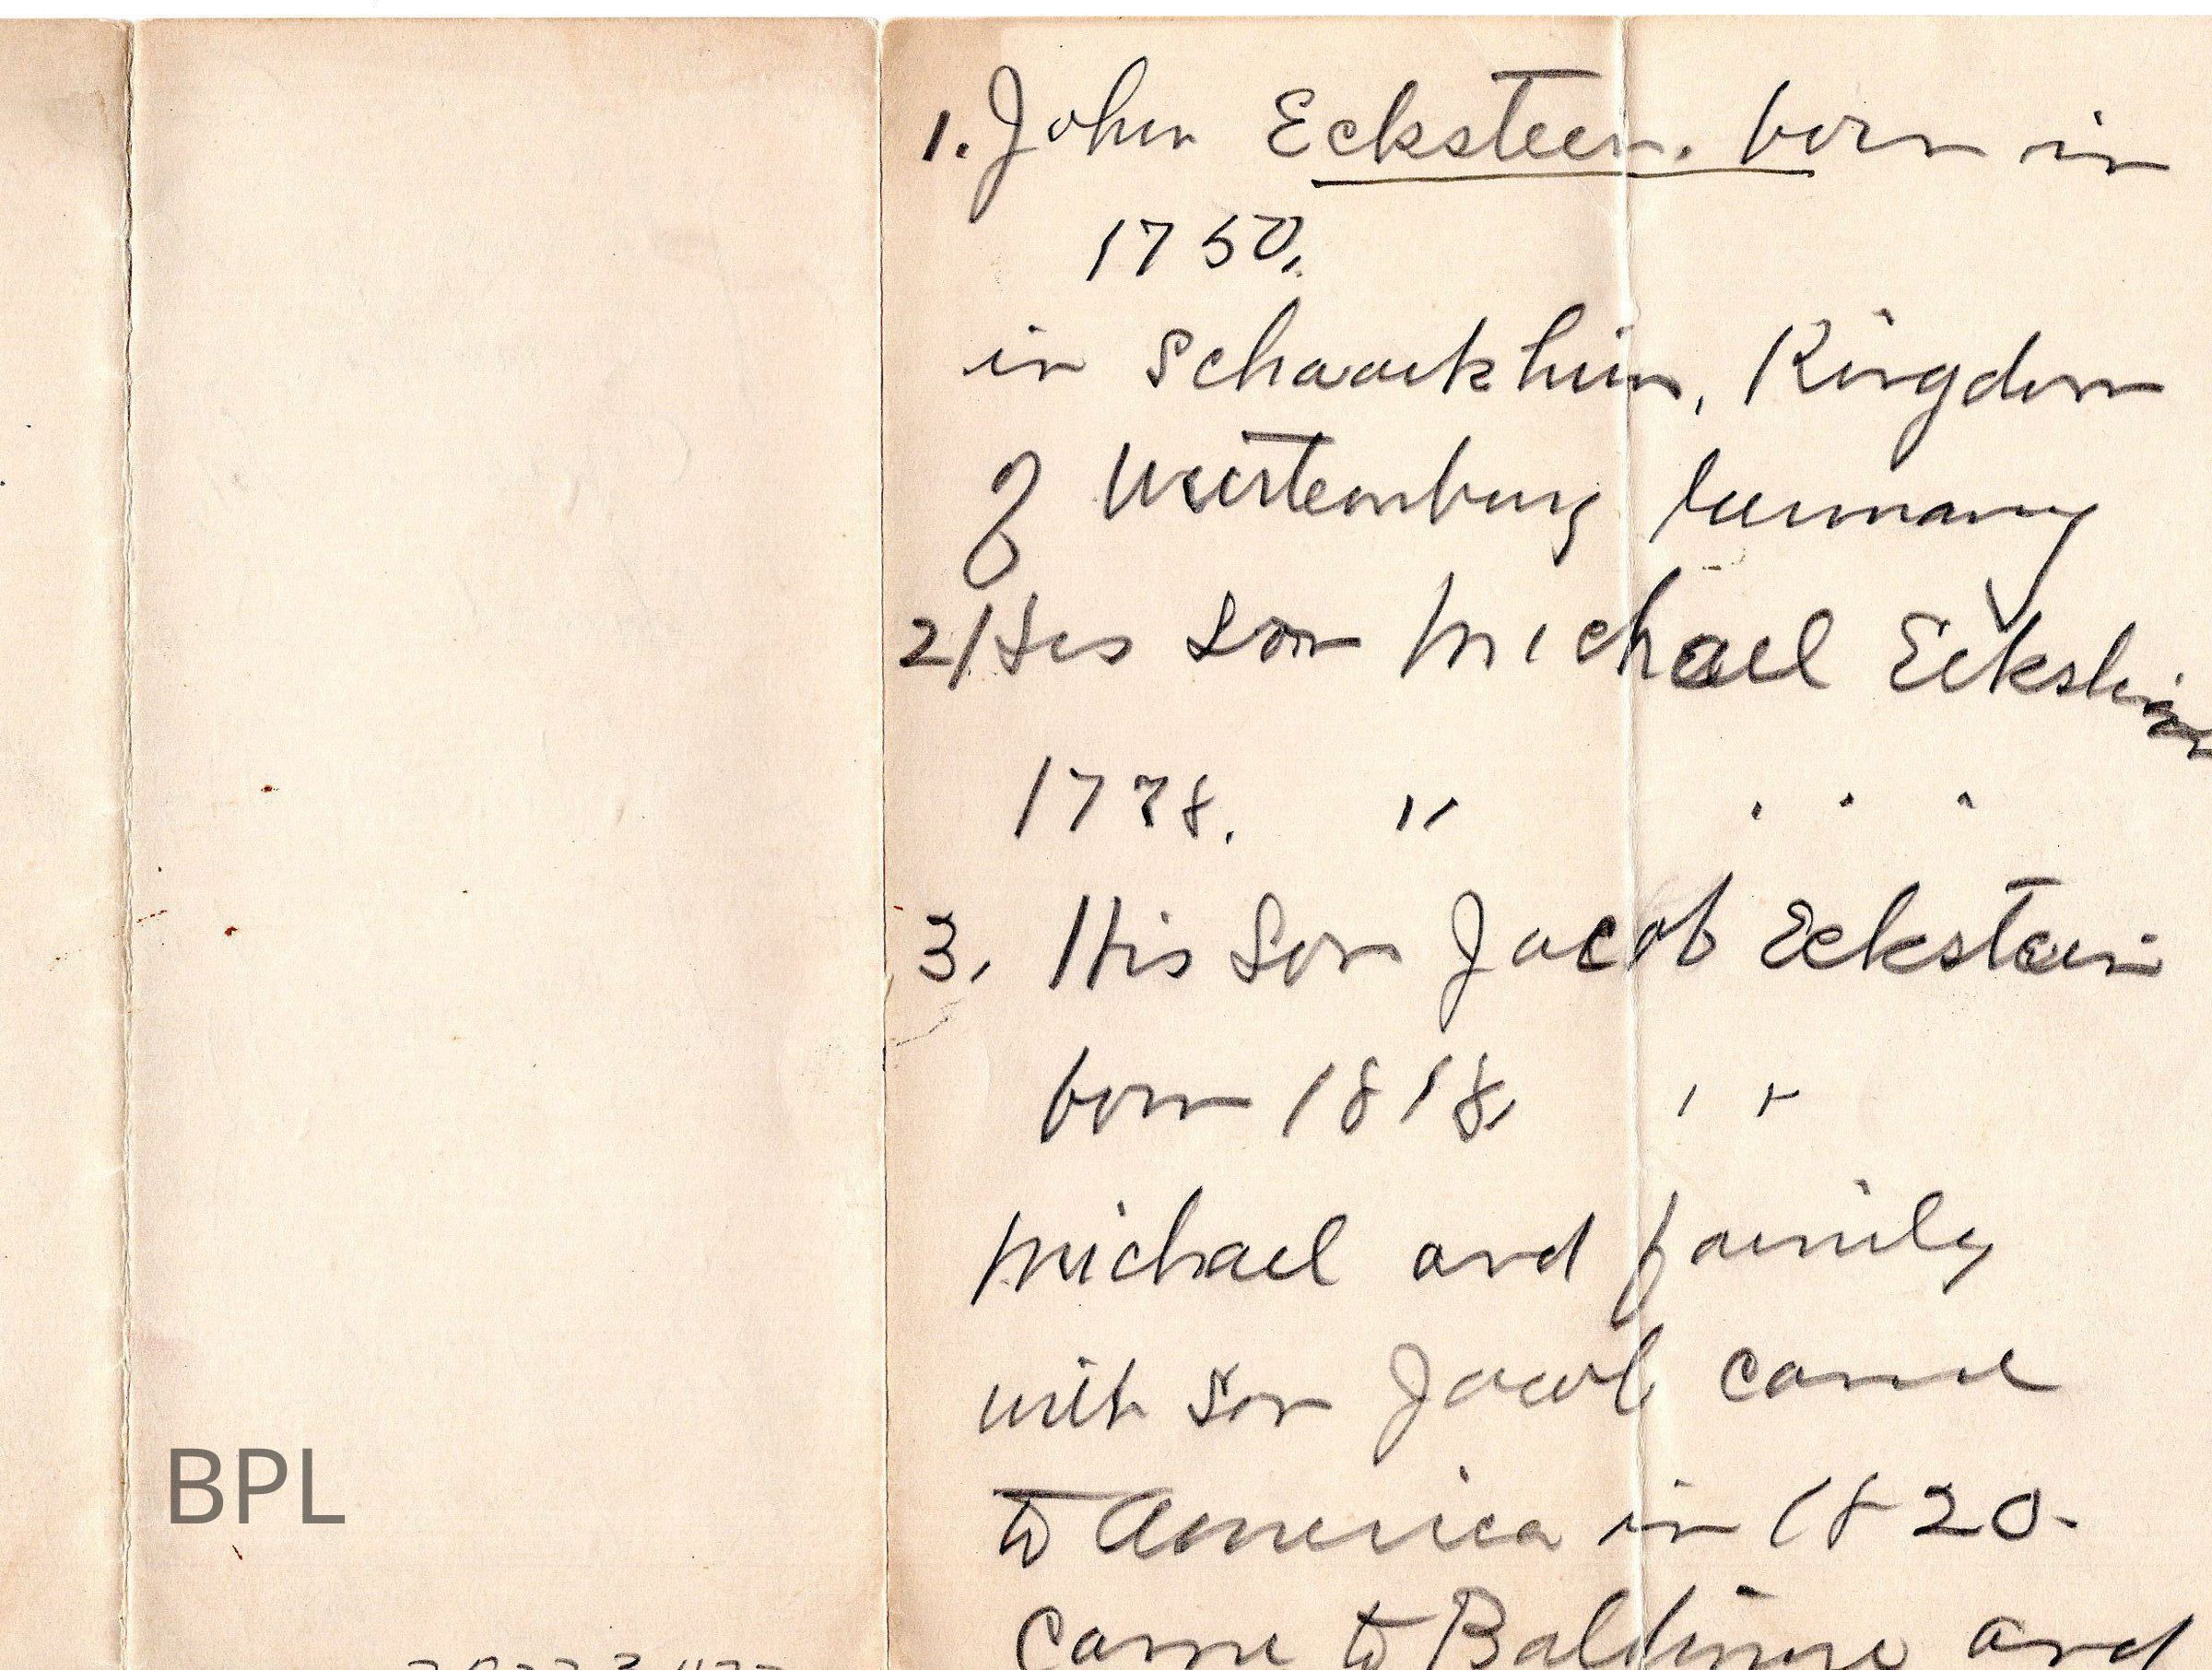 1. John Eckstein. born in
1750.
in Kingdom
of Wurtemburg Germany
2/ His son Michael Eckstein
1778. "
3. His Son Jacob Eckstein
born 1818, " "
Michael and family
with son Jacob came
to America in 1820-
Came to Baltimore and
BPL